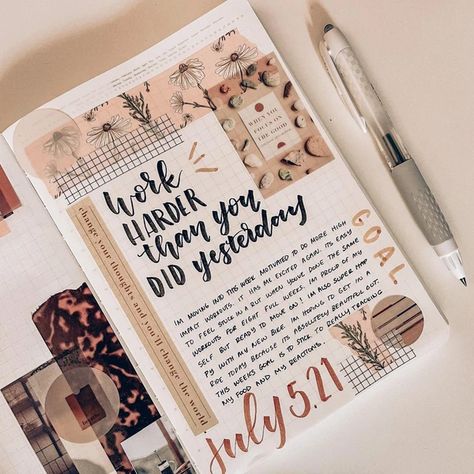 WHEN YOU
FOCUS ON
THE GOOD
Work
HARDER
than you
DID yesterday
change your thoughts and you'll change the world
IM MOVING INTO THIS WEEK MOTIVATED TO DO MORE HIGH
IMPACT WORKOUTS. IT HAS ME EXCITED AGAIN. ITS EASY
TO FEEL STUCK IN A RUT WHEN YOUVE DONE THE SAME
WORKOUTS FOR EIGHT FULL WEEKS. IM PROUD OF MY
SELF BUT READY TO MOVE ON! IM ALSO SUPER HAP
PY WITH MY NEW BIKE. IM HOPING TO GET IN A
RIDE TODAY BECAUSE ITS ABSOLUTELY BEAUTIFUL OUT.
THIS WEEKS GOAL IS TO STICK TO REALLY TRACKING
MY FOOD AND MY REACTIONS.
GOAL
July 5.21